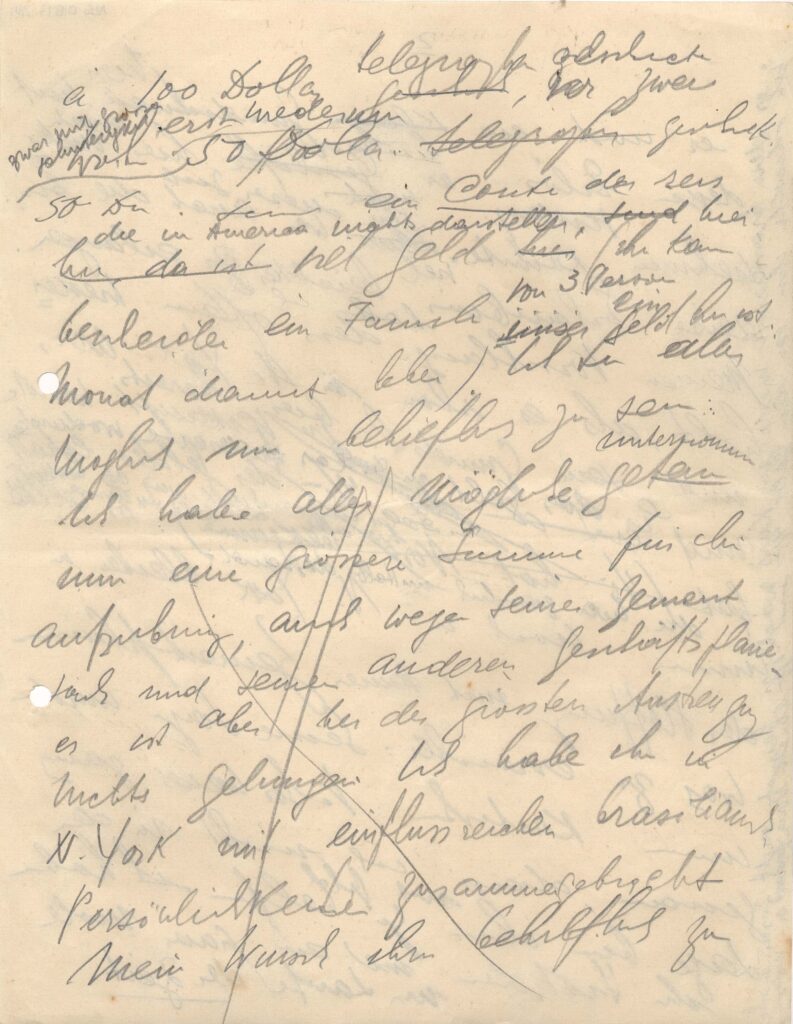 telegrafisch geschickt
a 100 Dollar, vor zwei
erst wiederum
zwar mit grosser
50 Dollar telegrafisch geschickt
50 ein Conto des reis
die in America nichts darstellen, sind hier
hin, da ist viel Geld hier (ich kann
von 3 Person
bescheiden ein Familie ein Geld
Monat damit leben) Ich tu alles
möglich um behilflich zu sein
unternommen
Ich habe alles mögliche getan
um eine grössere Summe für ihn
aufzubring, auch wegen seiner Zement
sach und seinen anderen Geschäftsplane
es ist aber bei der grössten Anstrengung
nichts gelungen Ich habe ihn in
N. York mit einflussreichen brasilianisch
Persönlichkeiten zusammengebracht
Mein Wunsch ihm behilflich zu